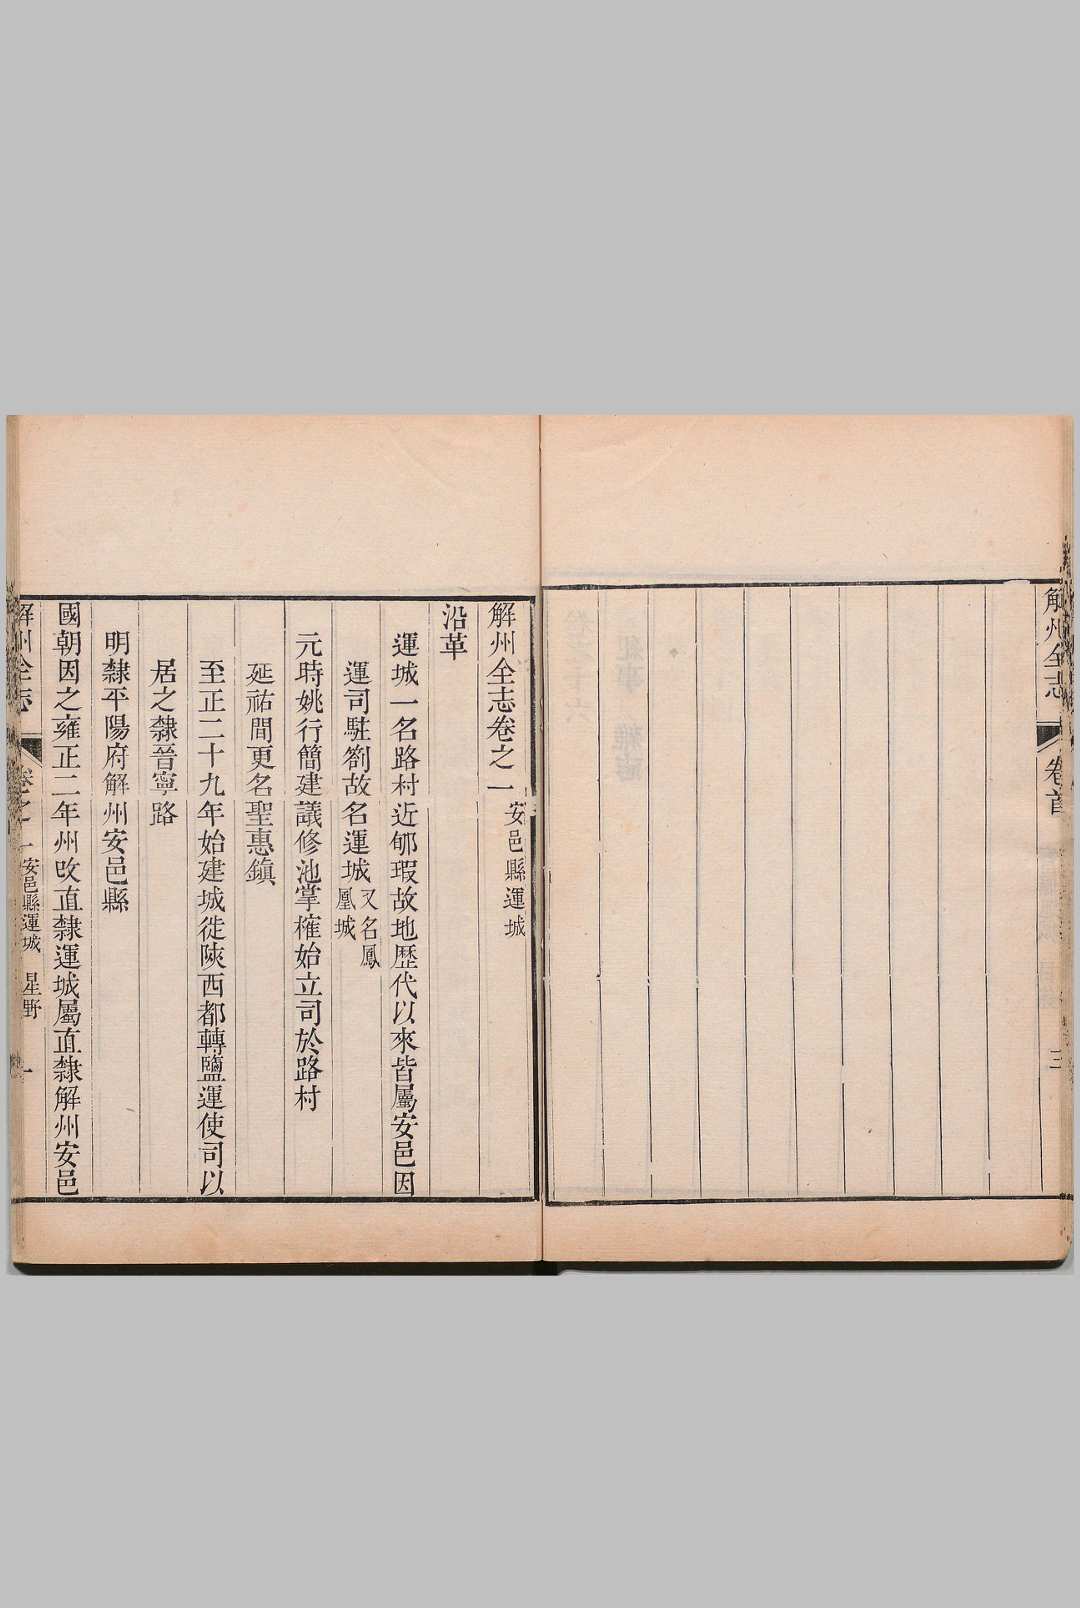 解州全志
卷首
三
解州全志卷之一 安邑縣運城
沿革
運城一名路村近郇瑕故地歷代以來皆屬安邑因
運司駐劄故名運城 又名鳳凰城
元時姚行簡建議修池掌榷始立司於路村
延祐間更名聖惠鎮
至正二十九年始建城徙陝西都轉鹽運使司以
居之隸晉寧路
明隸平陽府解州安邑縣
國朝因之雍正二年州改直隸運城屬直隸解州安邑
解州全志
卷之一 安邑縣運城 星野
一